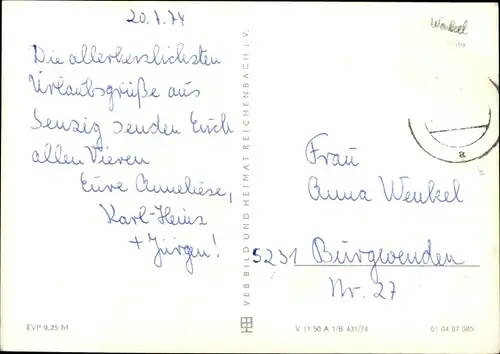 20.7.74
Die allerherzlichsten
Urlaubsgrüße aus
Senzig senden Euch
allen Vieren
Eure Anneliese,
Karl-Heinz
+ Jürgen!
EVP 0,25 M
VEB BILD UND HEIMAT REICHENBACH i. V.
Wenkel
a
Frau
Anna Wenkel
5231 Burgwenden
Nr. 27
V 11 50 A 1/B 431/74
01 04 07 085